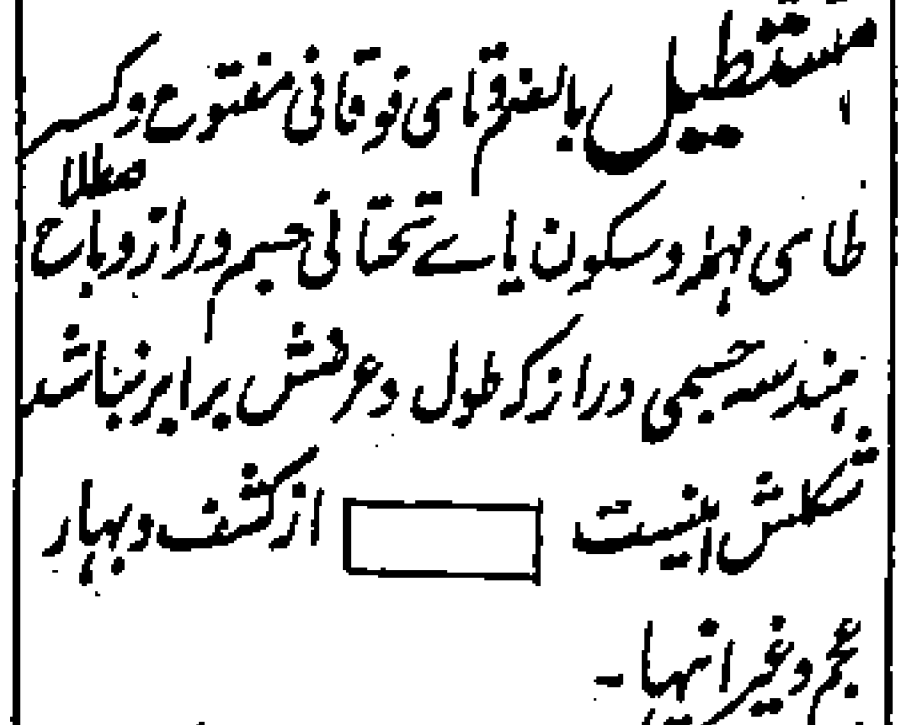 مستطیل بالضم تای فوقانی مفتوح و کسر
طای مهمله و سکون یاے تحتانی جسم دراز و باصطلاح
هندسه جسمی دراز که طول و عرضش برابر نباشد
شکلش اینست از کشف و بهار
عجم و غیر انها -